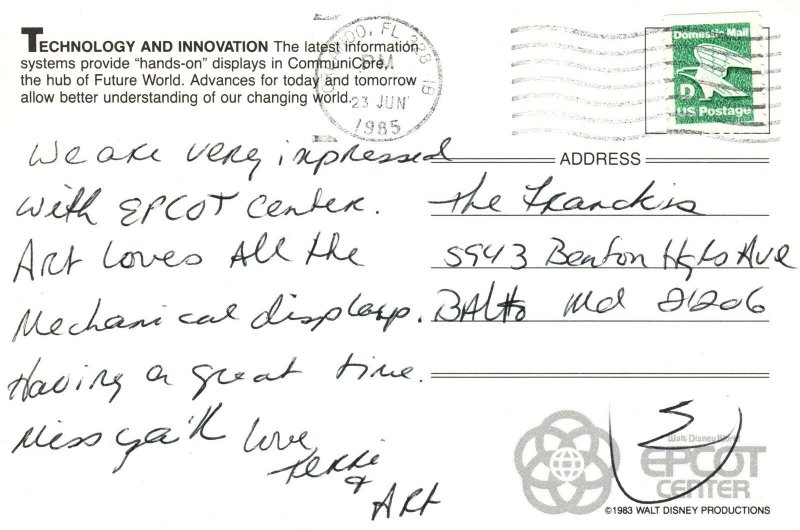 TECHNOLOGY AND INNOVATION The latest information
systems provide "hands-on" displays in CommuniCore,
the hub of Future World. Advances for today and tomorrow
allow better understanding of our changing world.
ORLANDO, FL 328
PM
23 JUN
1985
Domestic Mail
D
US Postage
We are very impressed
with EPCOT Center.
Art loves all the
mechanical displays.
Having a great time.
Miss ya'll love
Terri
&
Art
ADDRESS
The Franckis
5943 Benton Hgts Ave
Balto Md 21206
Walt Disney World
EPCOT
CENTER
©1983 WALT DISNEY PRODUCTIONS